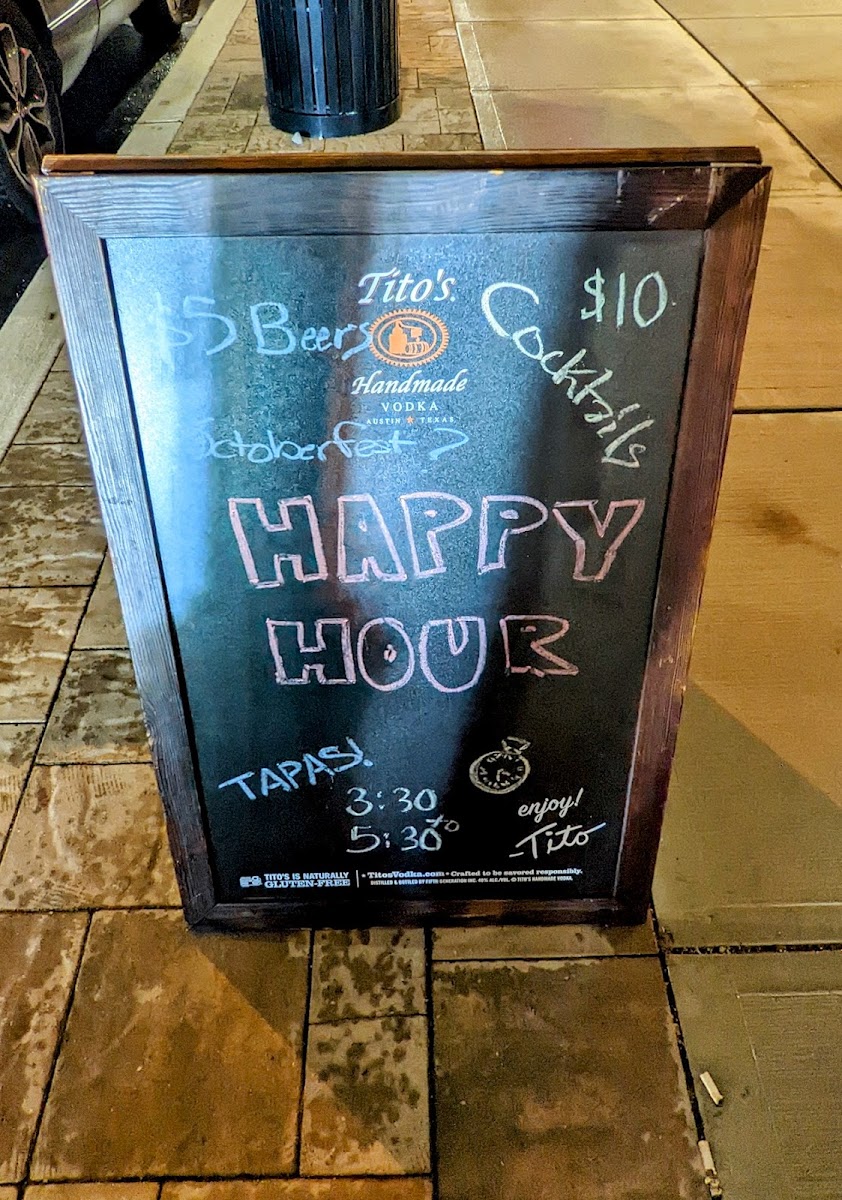 Tito's
$5 Beers
$10
Cocktails
Handmade
VODKA
AUSTIN ★ TEXAS
Octoberfest?
HAPPY
HOUR
TAPAS!
3:30
to
5:30
enjoy!
-Tito
TITO'S IS NATURALLY
GLUTEN-FREE
• TitosVodka.com • Crafted to be savored responsibly.
DISTILLED & BOTTLED BY FIFTH GENERATION INC. 40% ALC./VOL. © TITO'S HANDMADE VODKA.